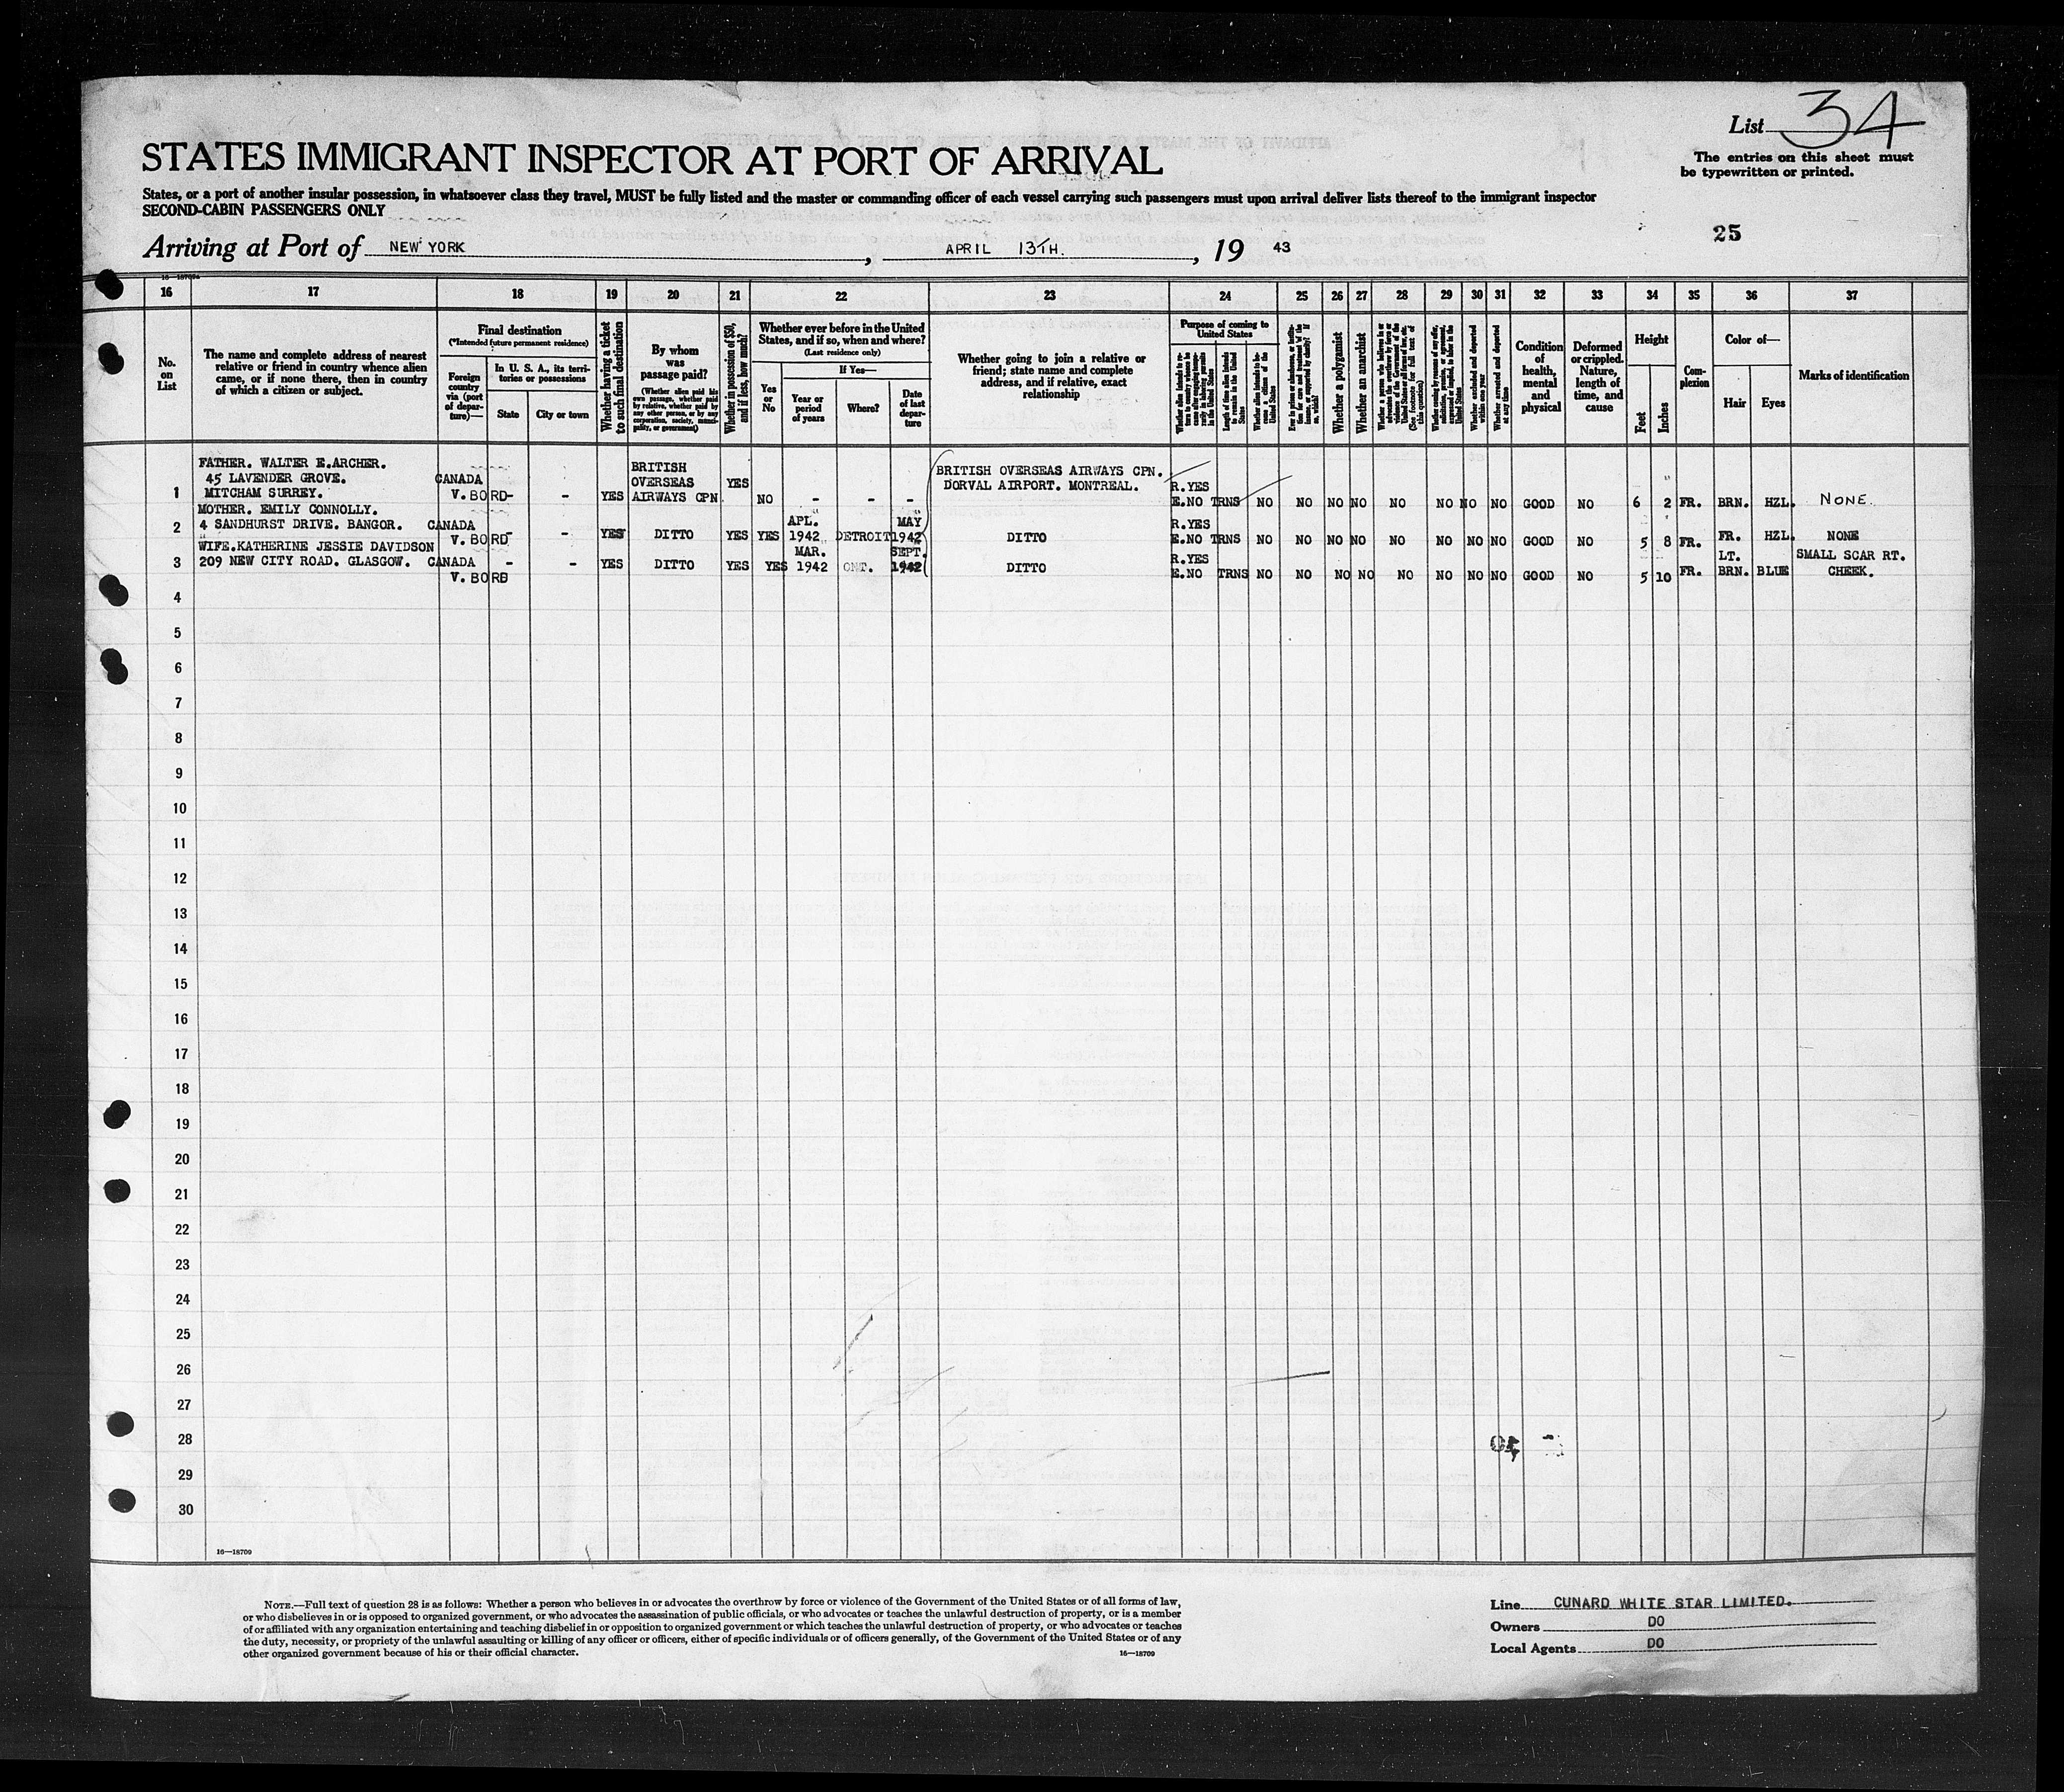 List 34
STATES IMMIGRANT INSPECTOR AT PORT OF ARRIVAL
The entries on this sheet must
be typewritten or printed.
States, or a port of another insular possession, in whatsoever class they travel, MUST be fully listed and the master or commanding officer of each vessel carrying such passengers must upon arrival deliver lists thereof to the immigrant inspector
SECOND-CABIN PASSENGERS ONLY
25
Arriving at Port of NEW YORK, APRIL 13TH., 19 43
16 17 18 19 20 21 22 23 24 25 26 27 28 29 30 31 32 33 34 35 36 37
No.
on
List
The name and complete address of nearest
relative or friend in country whence alien
came, or if none there, then in country
of which a citizen or subject.
Final destination
(*Intended future permanent residence)
Foreign
country
via (port
of depar-
ture)—
In U. S. A., its terri-
tories or possessions
State
City or town
Whether having a ticket
to such final destination
By whom
was
passage paid?
(Whether alien paid his
own passage, whether paid
by relative, whether paid by
any other person, or by any
corporation, society, munici-
pality, or government)
Whether in possession of $50,
and if less, how much?
Whether ever before in the United
States, and if so, when and where?
(Last residence only)
Yes
or
No
If Yes—
Year or
period
of years
Where?
Date
of last
depar-
ture
Whether going to join a relative or
friend; state name and complete
address, and if relative, exact
relationship
Purpose of coming to
United States
Length of time alien intends
to remain in the United
States
Whether alien intends to be-
come a citizen of the
United States
Whether a polygamist
Whether an anarchist
Whether excluded and deported
within one year
Whether arrested and deported
at any time
Condition
of
health,
mental
and
physical
Deformed
or crippled.
Nature,
length of
time, and
cause
Height
Feet
Inches
Com-
plexion
Color of—
Hair
Eyes
Marks of identification
FATHER. WALTER E.ARCHER.
45 LAVENDER GROVE.
1 MITCHAM SURREY. CANADA V. BORD- - YES BRITISH OVERSEAS AIRWAYS CPN. YES NO - - - BRITISH OVERSEAS AIRWAYS CPN. DORVAL AIRPORT. MONTREAL. R.YES E.NO TRNS NO NO NO NO NO NO NO NO GOOD NO 6 2 FR. BRN. HZL. NONE
MOTHER. EMILY CONNOLLY.
2 4 SANDHURST DRIVE. BANGOR. CANADA V. BORD - - YES DITTO YES YES APL. 1942 DETROIT MAY 1942 DITTO R.YES E.NO TRNS NO NO NO NO NO NO NO NO GOOD NO 5 8 FR. FR. HZL. NONE
WIFE.KATHERINE JESSIE DAVIDSON
3 209 NEW CITY ROAD. GLASGOW. CANADA V. BORD - - YES DITTO YES YES MAR. 1942 ONT. SEPT. 1942 DITTO R.YES E.NO TRNS NO NO NO NO NO NO NO NO GOOD NO 5 10 FR. LT. BRN. BLUE SMALL SCAR RT. CHEEK.
4
5
6
7
8
9
10
11
12
13
14
15
16
17
18
19
20
21
22
23
24
25
26
27
28
29
30
16—18709
NOTE.—Full text of question 28 is as follows: Whether a person who believes in or advocates the overthrow by force or violence of the Government of the United States or of all forms of law,
or who disbelieves in or is opposed to organized government, or who advocates the assassination of public officials, or who advocates or teaches the unlawful destruction of property, or is a member
of or affiliated with any organization entertaining and teaching disbelief in or opposition to organized government or which teaches the unlawful destruction of property, or who advocates or teaches
the duty, necessity, or propriety of the unlawful assaulting or killing of any officer or officers, either of specific individuals or of officers generally, of the Government of the United States or of any
other organized government because of his or their official character.
16—18709
Line CUNARD WHITE STAR LIMITED.
Owners DO
Local Agents DO